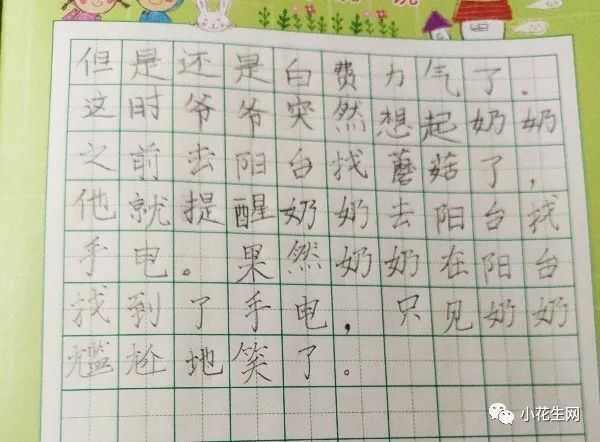 但是还是白费力气了.
这时爷爷突然想起奶奶
之前去阳台找蘑菇了,
他就提醒奶奶去阳台找
手电。果然奶奶在阳台
找到了手电,只见奶奶
尴尬地笑了。
小花生网